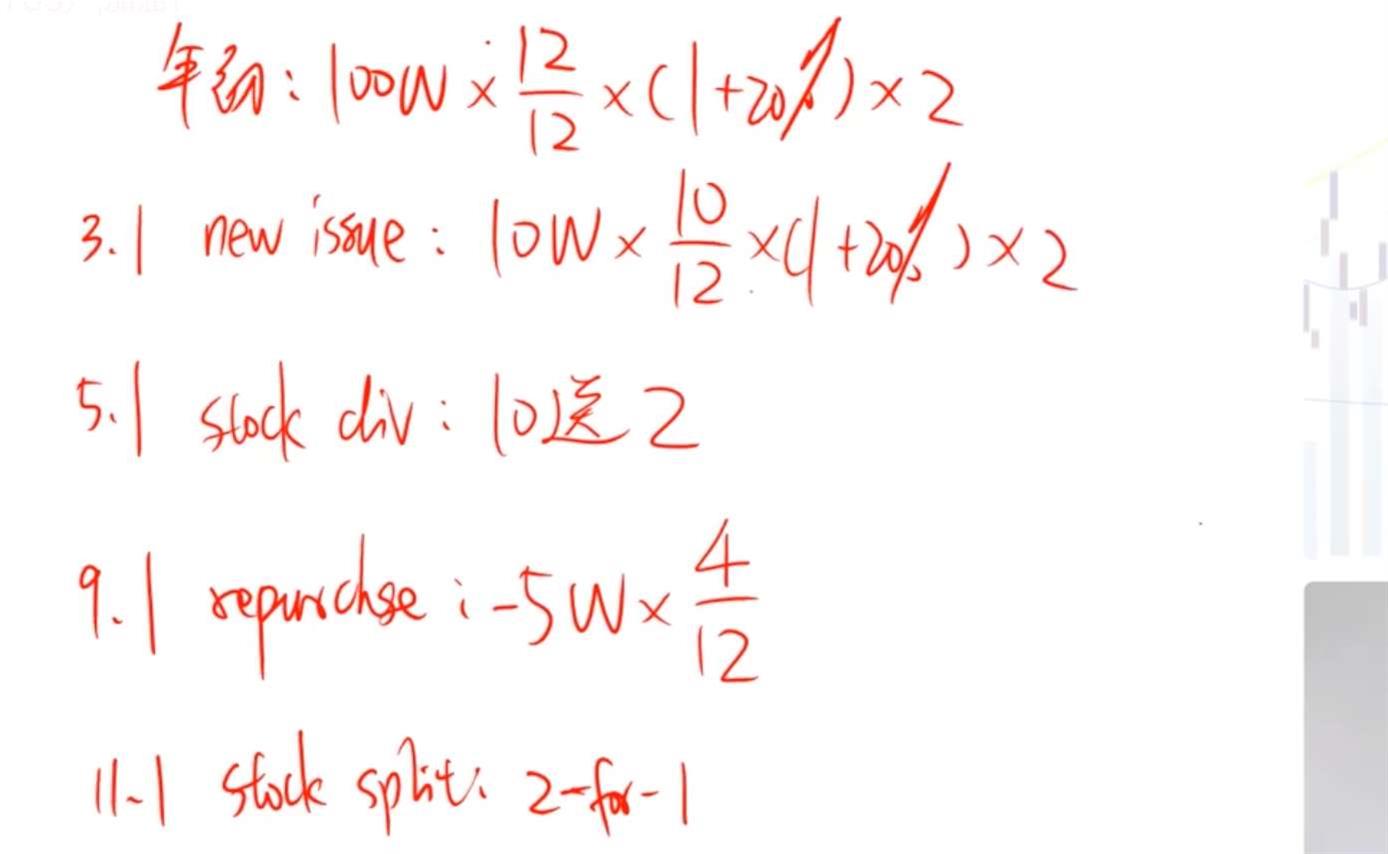 年初: 100W × 12/12 × (1+20%) × 2
3.1 new issue: 10W × 10/12 × (1+20%) × 2
5.1 stock div: 10送2
9.1 repurchse: -5W × 4/12
11.1 stock split: 2-for-1